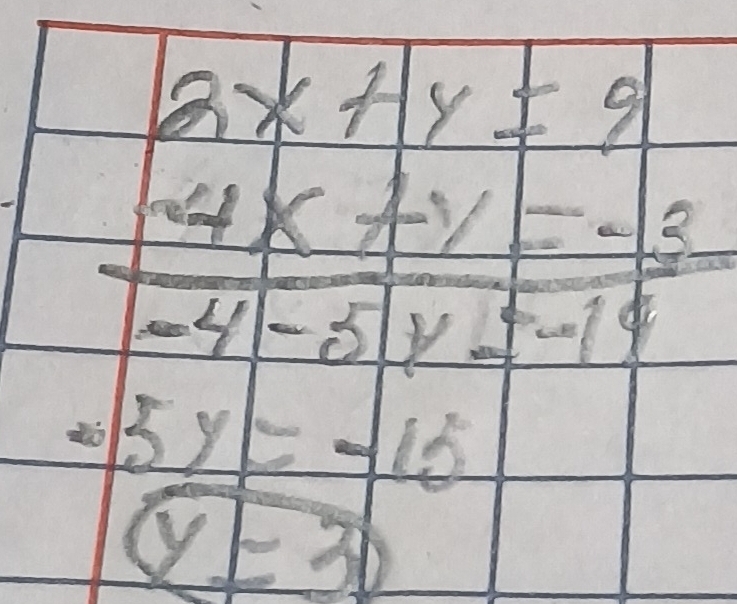 2x + y = 9
-4x + y = -3
-4 - 5y = -19
-5y = -15
y = 3